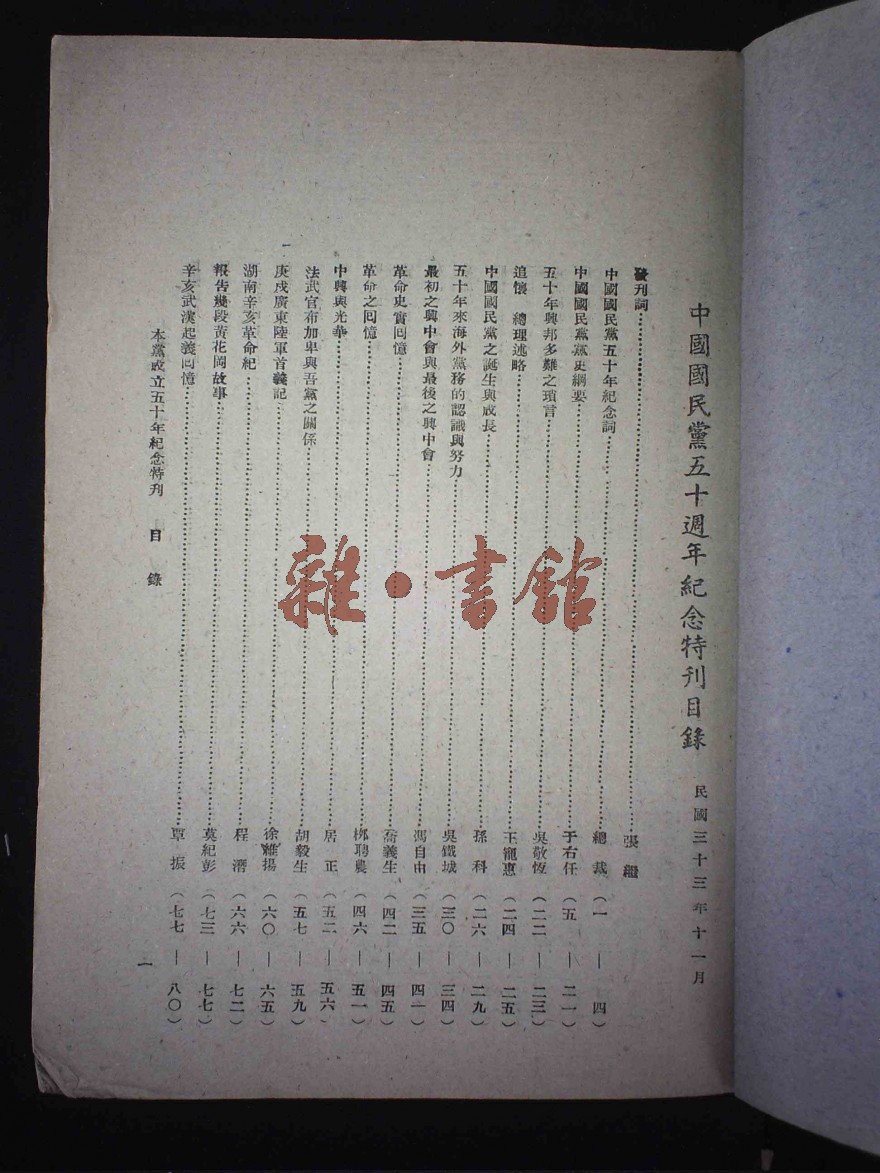 中國國民黨五十週年紀念特刊目錄　民國三十三年十一月
發刊詞……張繼
中國國民黨五十年紀念詞……總裁（一—四）
中國國民黨黨史綱要……于右任（五—二一）
五十年興邦多難之瑣言……吳敬恆（二二—二三）
追懷　總理述略……王寵惠（二四—二五）
中國國民黨之誕生與成長……孫科（二六—二九）
五十年來海外黨務的認識與努力……吳鐵城（三〇—三四）
最初之興中會與最後之興中會……馮自由（三五—四一）
革命史實回憶……喬義生（四二—四五）
革命之回憶……鄧聘農（四六—五一）
中興與光華……居正（五二—五六）
法武官布加卑與吾黨之關係……胡毅生（五七—五九）
庚戌廣東陸軍首義記……徐維揚（六〇—六五）
湖南辛亥革命紀……程潛（六六—七二）
報告幾段黃花岡故事……莫紀彭（七三—七七）
辛亥武漢起義回憶……覃振（七七—八〇）
本黨成立五十年紀念特刊　目錄　一
雜·書館